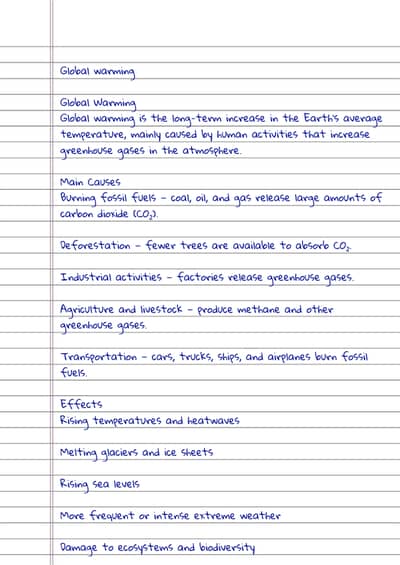 Global warming
Global Warming
Global warming is the long-term increase in the Earth's average
temperature, mainly caused by human activities that increase
greenhouse gases in the atmosphere.
Main Causes
Burning fossil fuels – coal, oil, and gas release large amounts of
carbon dioxide (CO₂).
Deforestation – fewer trees are available to absorb CO₂.
Industrial activities – factories release greenhouse gases.
Agriculture and livestock – produce methane and other
greenhouse gases.
Transportation – cars, trucks, ships, and airplanes burn fossil
fuels.
Effects
Rising temperatures and heatwaves
Melting glaciers and ice sheets
Rising sea levels
More frequent or intense extreme weather
Damage to ecosystems and biodiversity